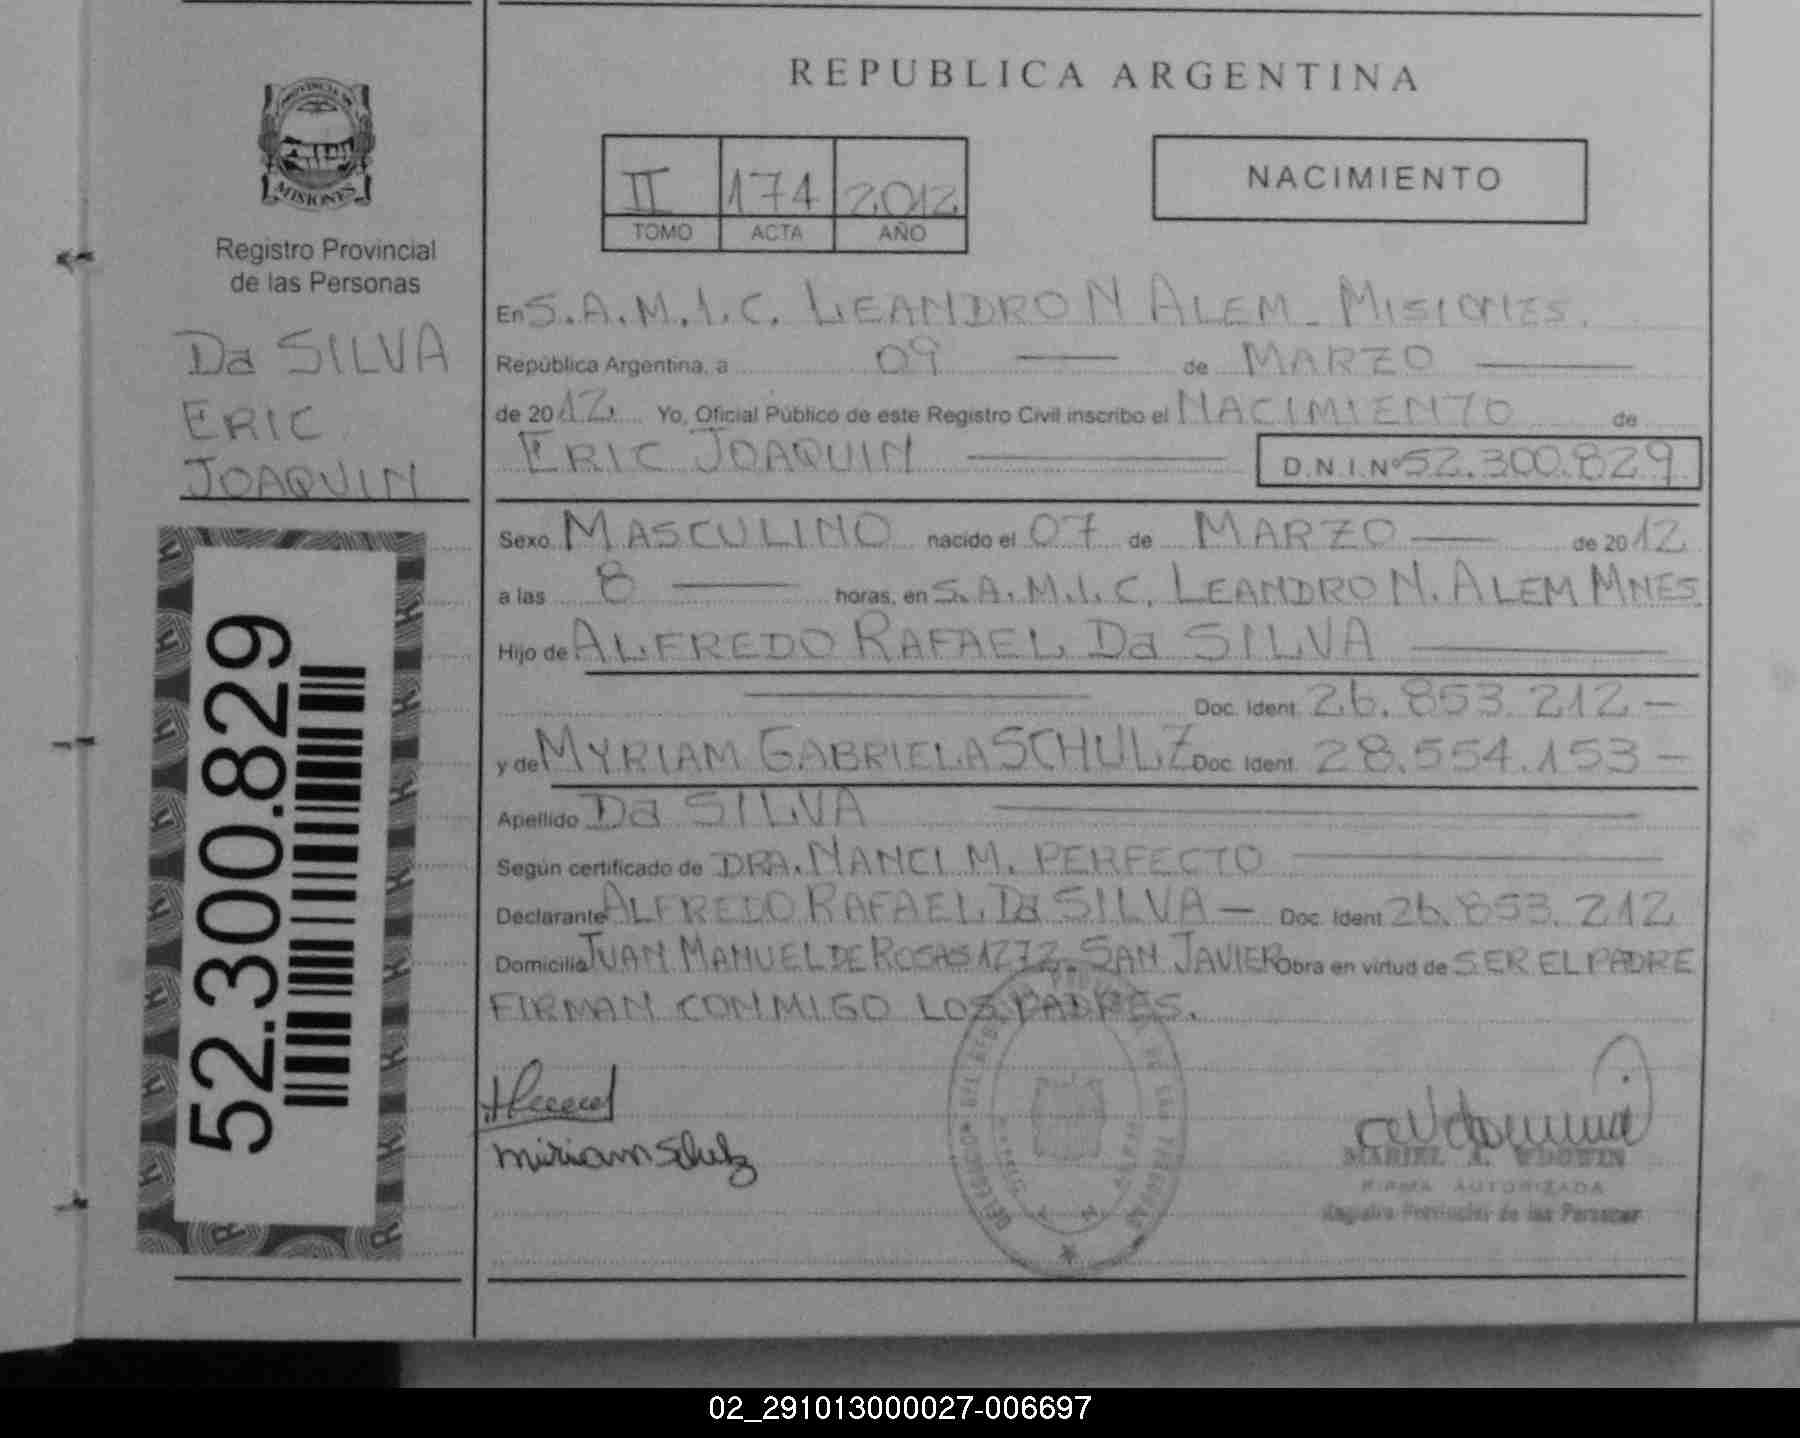 REPUBLICA ARGENTINA
PROVINCIA DE
MISIONES
Registro Provincial
de las Personas
Da SILVA
ERIC
JOAQUIN
52.300.829
II 174 2012
TOMO ACTA AÑO
NACIMIENTO
En S.A.M.I.C. LEANDRO N ALEM - MISIONES.
República Argentina, a 09 de MARZO
de 2012 Yo, Oficial Público de este Registro Civil inscribo el NACIMIENTO de
ERIC JOAQUIN D.N.I.Nº 52.300.829
Sexo MASCULINO nacido el 07 de MARZO de 2012
a las 8 horas, en S.A.M.I.C. LEANDRO N. ALEM MNES
Hijo de ALFREDO RAFAEL Da SILVA
Doc. Ident. 26.853.212 -
y de MYRIAM GABRIELA SCHULZ Doc. Ident. 28.554.153 -
Apellido Da SILVA
Según certificado de DRA. NANCI M. PERFECTO
Declarante ALFREDO RAFAEL Da SILVA - Doc. Ident 26.853.212
Domicilio JUAN MANUEL DE ROSAS 1272. SAN JAVIER Obra en virtud de SER EL PADRE
FIRMAN CONMIGO LOS PADRES.
miriam Schulz
MARIEL A. WDOWIN
FIRMA AUTORIZADA
Registro Provincial de las Personas
02_291013000027-006697